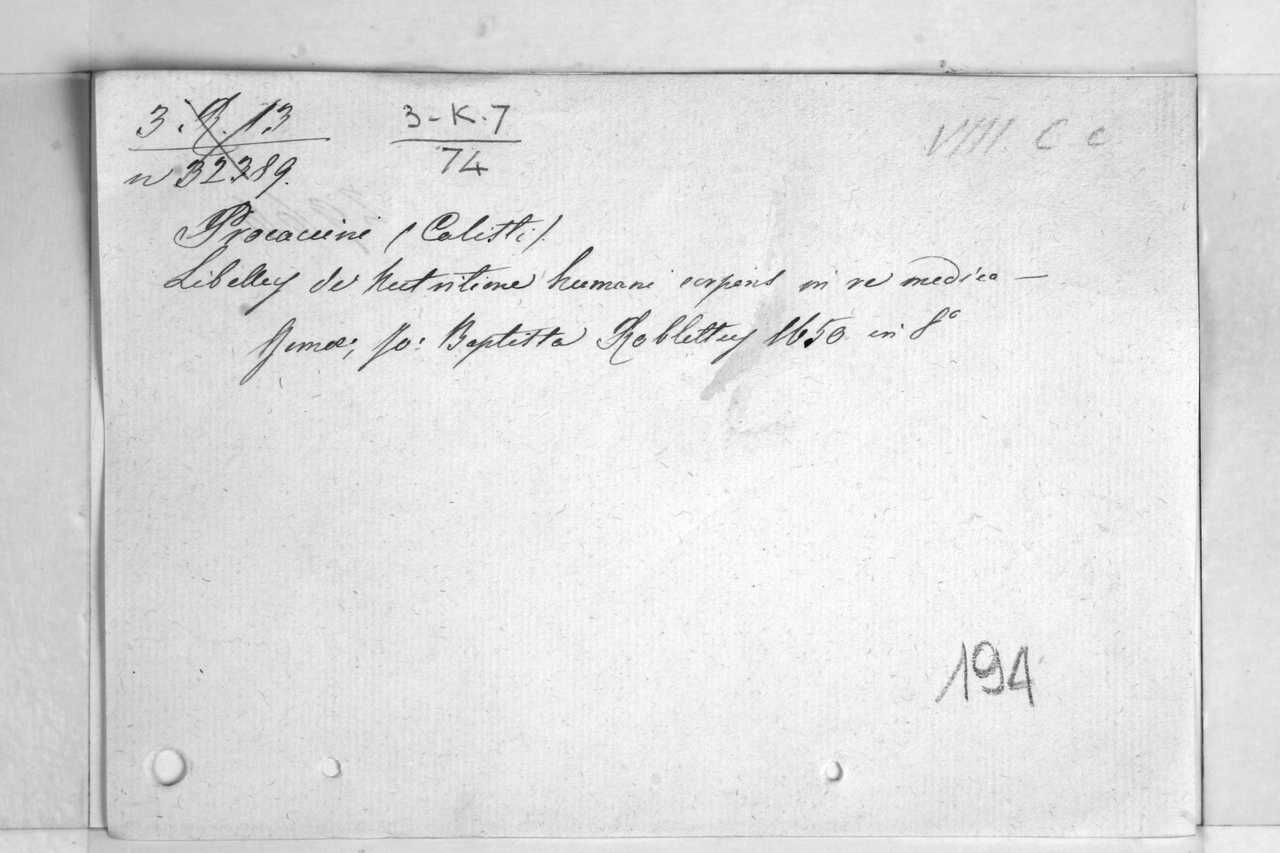 3. R. 13
n 32389.
3-K.7
74
VIII. C c
Procaccini (Calisti).
Libellus de Nutritione humani corporis in re medica —
Romæ; Jo: Baptista Roblettus 1650 in 8°
194